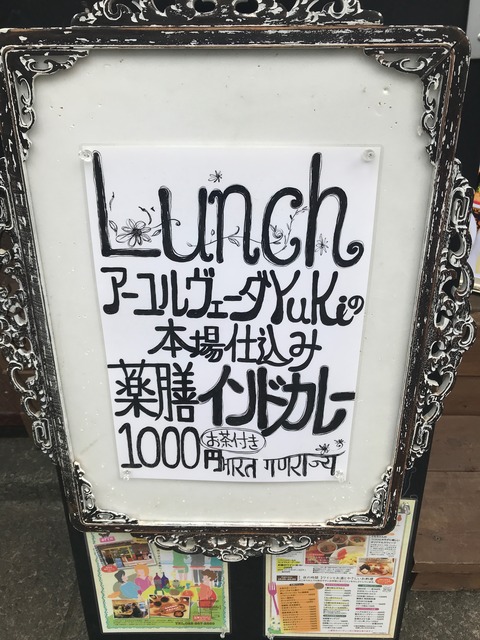 Lunch
アーユルヴェーダYuKiの
本場仕込み
薬膳インドカレー
1000円 お茶付き भारत गणराज्य